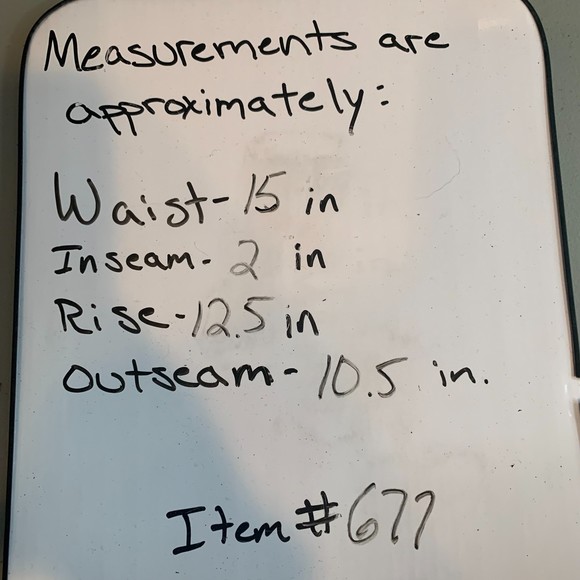 Measurements are
approximately:
Waist- 15 in
Inseam- 2 in
Rise-12.5 in
Outseam- 10.5 in.
Item #677